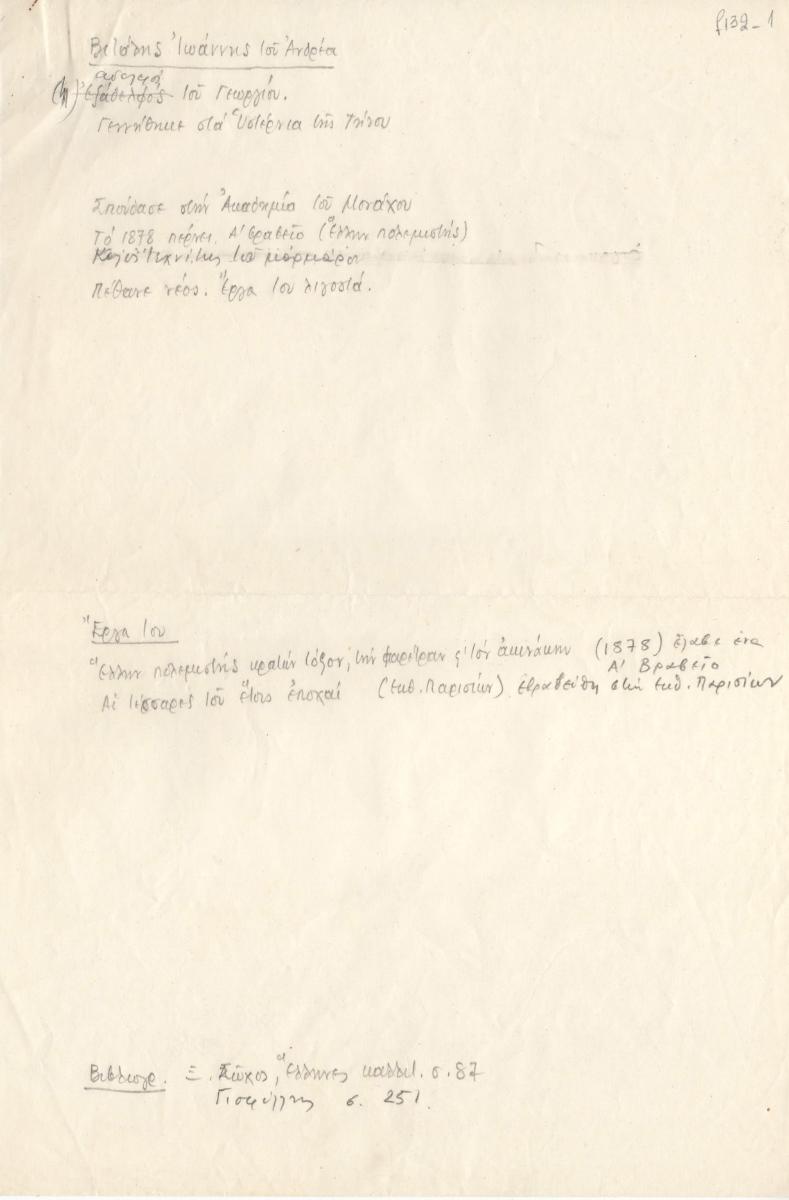 f132-1
Βιτάλης Ἰωάννης τοῦ Ἀνδρέα
ἀδελφός
(η) Ἐξάδελφος τοῦ Γεωργίου.
Γεννήθηκε στά Ὑστέρνια τῆς Τήνου
Σπούδασε στήν Ἀκαδημία τοῦ Μονάχου
Τό 1878 πέρνει Α' Βραβεῖο (Ἕλλην πολεμιστής)
Καλός τεχνίτης τοῦ μαρμάρου
Πέθανε νέος. Ἔργα του λιγοστά.
Ἔργα του
Ἕλλην πολεμιστής κρατῶν τόξον, τήν φαρέτραν κ' τόν ἀκινάκην (1878) ἔλαβε ἕνα
Α' Βραβεῖο
Αἱ τέσσαρες τοῦ ἔτους ἐποχαί (Ἐκθ. Παρισίων) ἐβραβεύθη στήν ἐκθ. Παρισίων
Βιβλιογρ. Ξ. Σῶχος, Ἕλληνες καλλιτ. σ. 87
Γισφύλλης σ. 251.